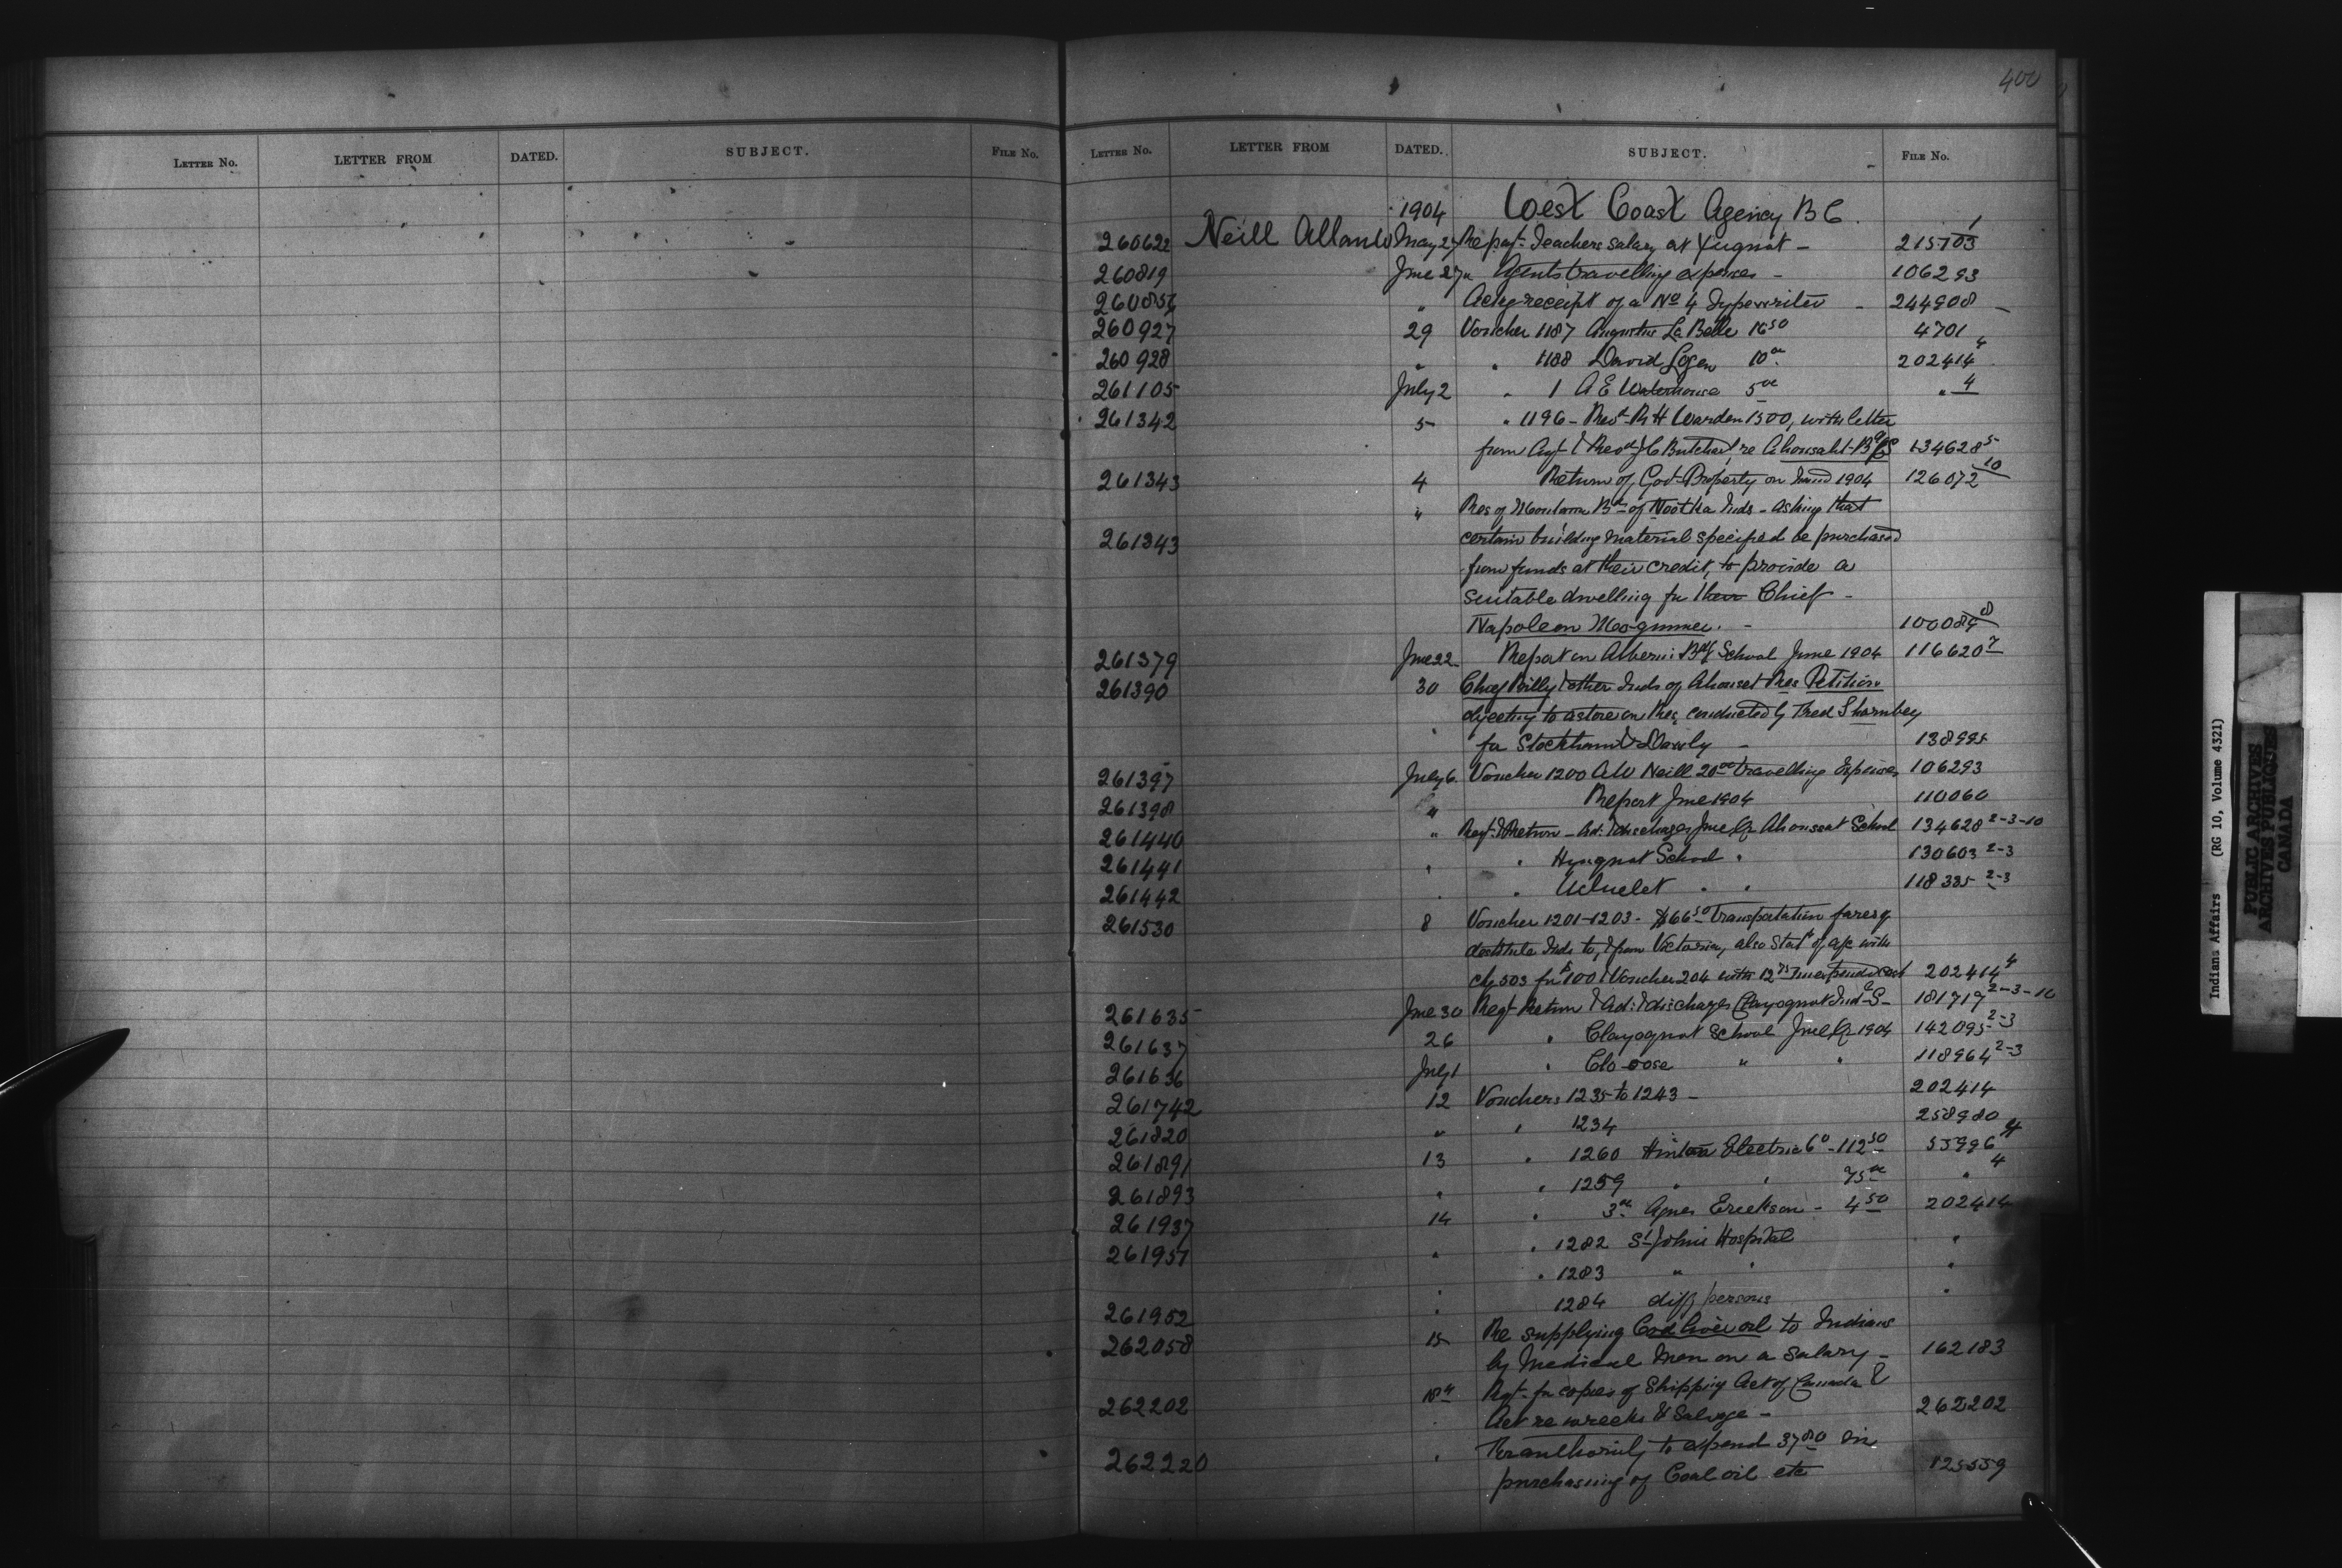 400
LETTER NO. LETTER FROM DATED. SUBJECT. FILE NO.
LETTER NO. LETTER FROM DATED. SUBJECT. FILE NO.
1904 West Coast Agency B C.
260622 Neill Allan W May 27 Re payt Teachers salary at Yuquot - 215103 1
260819 June 27 " Agents travelling expenses - 106293
260856 " Ackg receipt of a No 4 Typewriter - 244908
260927 29 Voucher 1187 Augustus La Belle 16 50 4701
260928 " " 1188 David Logan 10 00 202414 4
261105 July 2 " 1 A E Waterhouse 5 00 " 4
261342 5 " 1196 - Revd R H Warden 1500, with letter
from Agt & Revd J C Butchart, re Ahousaht B 134628 5
261343 4 Return of Govt Property on hand 1904 126072 10
" Res of Band of Nootka Inds - asking that
261343 certain building material specified be purchased
from funds at their credit, to provide a
suitable dwelling for their Chief -
Napoleon Maquinna. - 100089
261379 June 22 Report on Alberni Bdg School June 1904 116620 7
261390 30 Chief Billy & other Inds of Ahouset Res Petition
objecting to a store on Res, conducted by Fred Thornbey
for Stockham & Dawly - 138995
261397 July 6 Voucher 1200 A W Neill 20 00 travelling Expenses 106293
261398 " Report June 1904 110060
261440 " Reqt & Return - Ad: & discharges June Qr Ahoussat School 134628 2-3-10
261441 " " Yuquot School " 130603 2-3
261442 " " Ucluelet " " 118335 2-3
261530 8 Voucher 1201-1203 - $66 50 Transportation fares of
destitute Inds to, & from Victoria, also Statt of a/c with
chq 503 for $100 & Voucher 204 with 12 75 unexpended cash 202414 4
261635 June 30 Reqt Return & Ad: & discharges Clayoquot Ind S - 181719 2-3-10
261637 26 " Clayoquot School June Qr 1904 142095 2-3
261636 July 1 " Clo-oose " " 118964 2-3
261742 12 Vouchers 1235 to 1243 - 202414
261820 " " 1234 258980
261891 13 " 1260 Hinton Electric Co - 112 50 55996 4
261893 " " 1259 " " 75 00 " 4
261937 14 " 3 Agnes Erickson - 4 50 202414
261951 " " 1282 St Johns Hospital "
" 1283 " " "
261952 " 1284 diff persons "
262058 15 Re supplying Cod liver oil to Indians
by Medical Men on a salary - 162183
262202 18th Rqt for copies of Shipping Act of Canada &
Act re wrecks & Salvage - 262202
262220 " For authority to expend 37 80 in
purchasing of Coal oil etc 125559
Indians Affairs (RG 10, Volume 4321)
PUBLIC ARCHIVES
ARCHIVES PUBLIQUES
CANADA